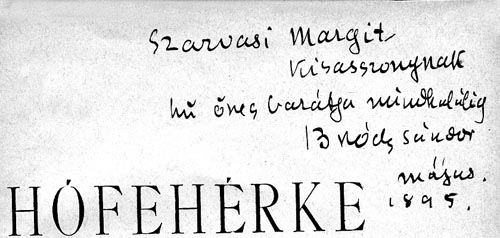 Szarvasi Margit
kisasszonynak
hű öreg barátja mindhalálig
Bródy Sándor
május.
1895.
HÓFEHÉRKE